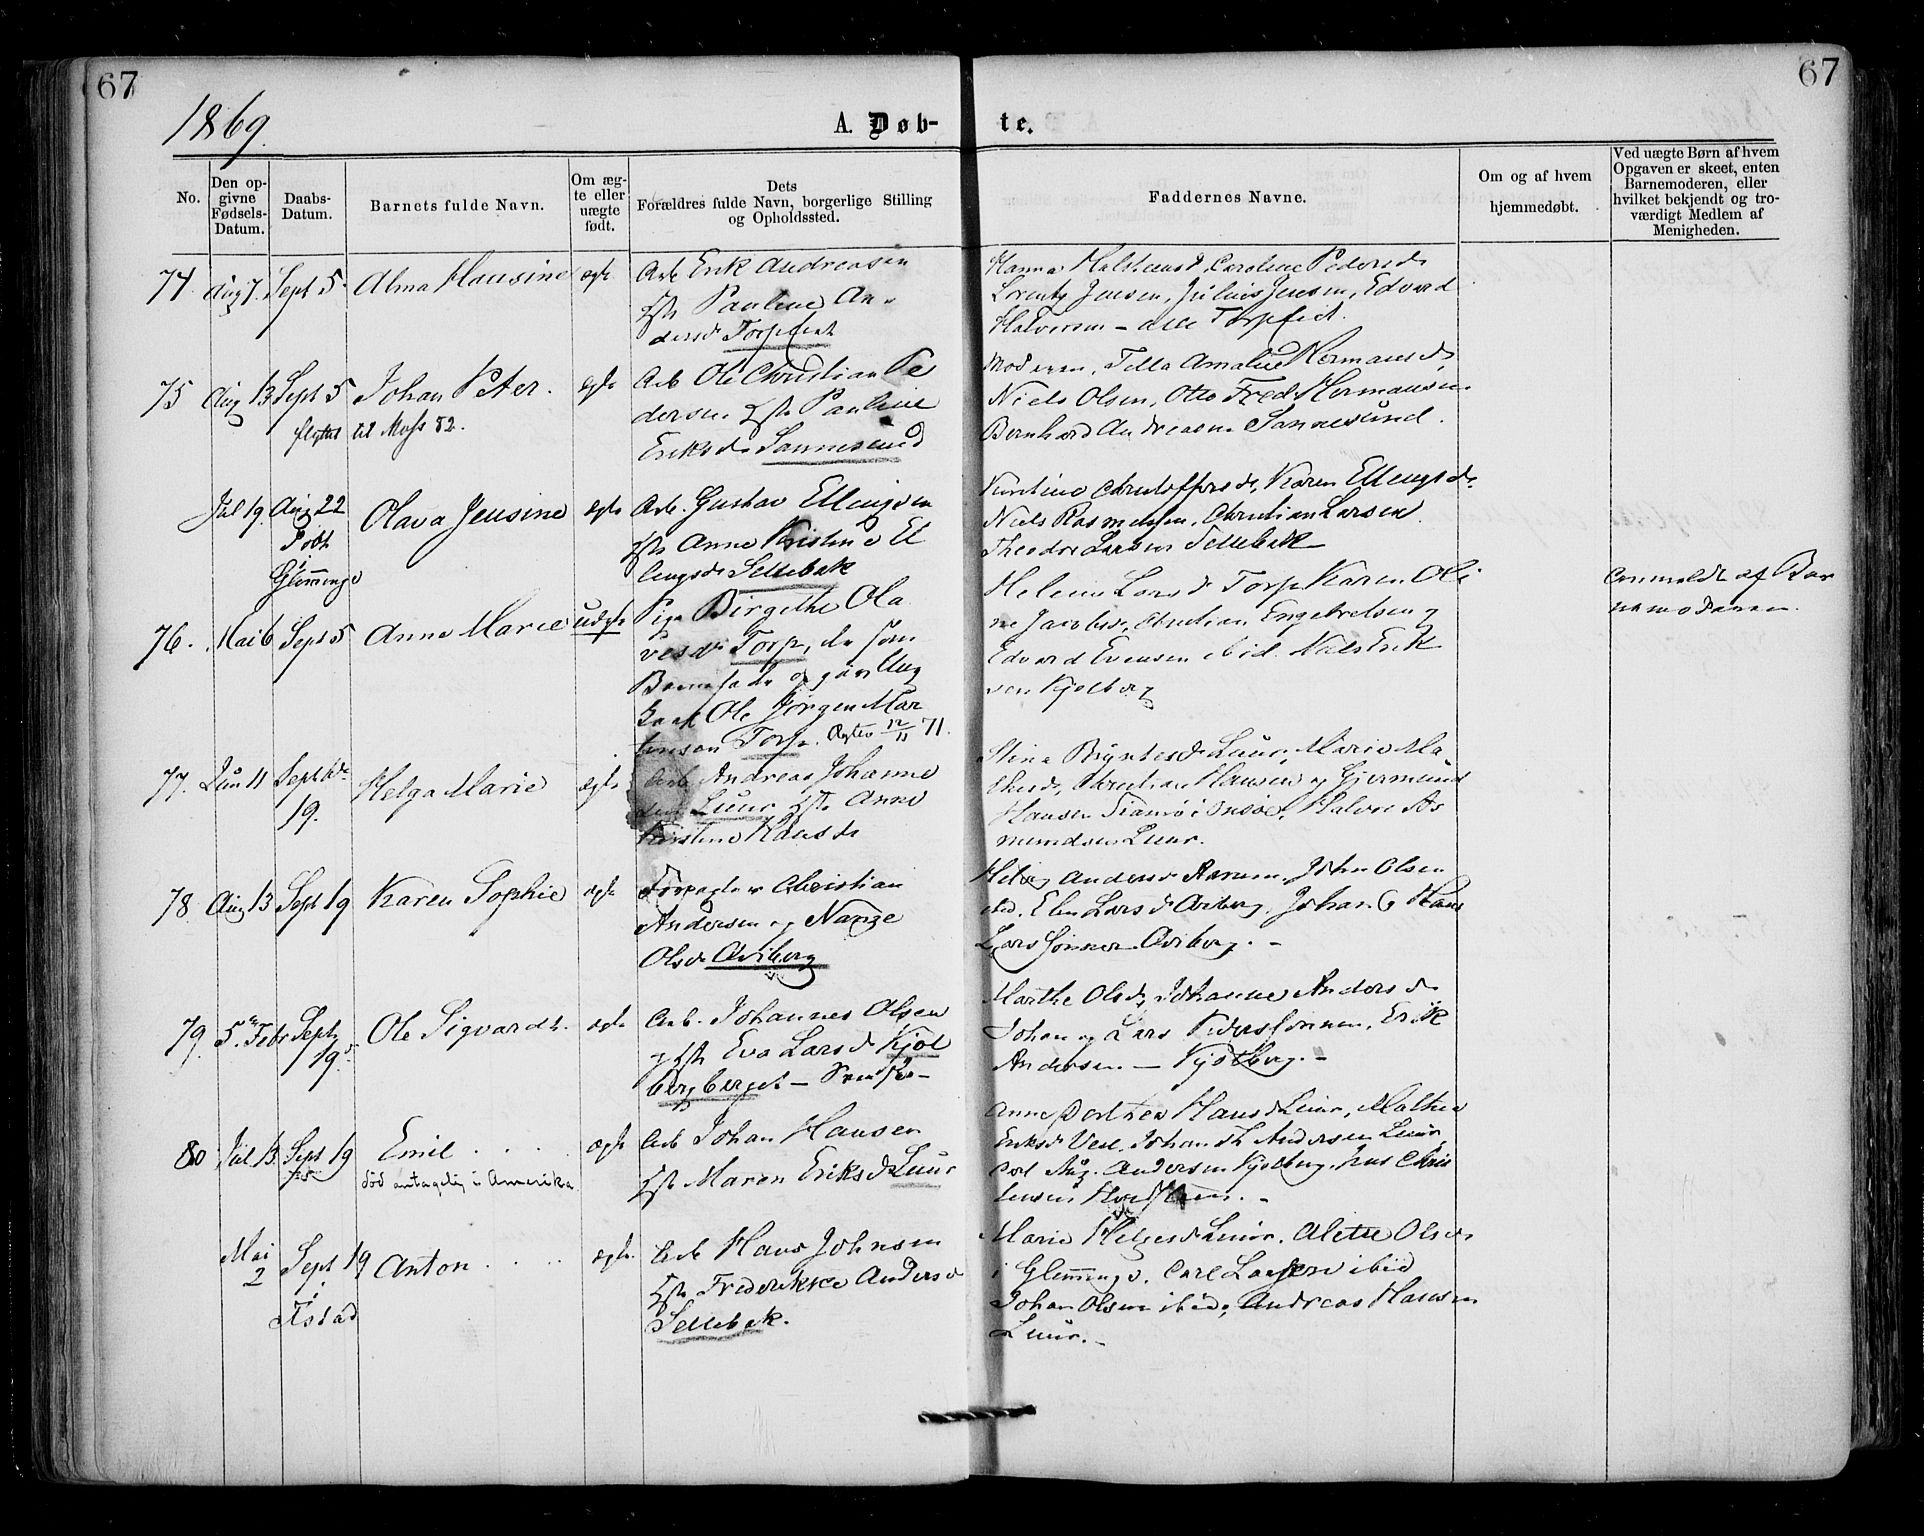 67
67
1869.
A. Døb-
te.
No.
Den op-
givne
Fødsels-
Datum.
Daabs-
Datum.
Barnets fulde Navn.
Om æg-
te eller
uægte
født.
Dets
Forældres fulde Navn, borgerlige Stilling
og Opholdssted.
Faddernes Navne.
Om og af hvem
hjemmedøbt.
Ved uægte Børn af hvem
Opgaven er skeet, enten
Barnemoderen, eller
hvilket bekjendt og tro-
værdigt Medlem af
Menigheden.
74 Aug 7. Sept 5. Alma Hansine ægte
Arb Erik Andreasen
Hstr Pauline An-
dersd Torpfed
Hanna Halstensd, Caroline Pedersd
Lorentz Jensen, Julius Jensen, Edvard
Halversen - alle Torpfed.
75 Aug 13 Sept 5 Johan Peter. ægte
flyttet til Moss 82.
Arb Ole Christian Pe
dersen Hstr Pauline
Eriksd. Sannesund
Moderen, Amalie Hermansd,
Niels Olsen, Otto Fred. Hermansen
Bernhard Andreasen Sannesund.
Jul 19. Aug 22 Olava Jensine ægte
Døbt
i
Glemminge
Arb. Gustav Ellingsen
Hstr Anne Kristine El
lingsd Sellebak
Christoffersd, Karen Ellingsd.
Niels Rasmussen, Christian Larsen
Theodor Larsen Sellebak
76. Mai 6 Sept 5 Anne Marie uægte
Pige Birgethe Ola
vesd Torp, da som
Barnefader
Ole Jörgen Mar
tinsen Torp. Ægtev 12/11 71.
Helene Larsd Torp Karen Oli
ne Jacobsd, Christian Engebretsen og
Edvard Evensen ibid. Niels Erik
sen Kjølberg
Anmeldt af Bar
nemoderen.
77. Jun 11 Sept
19.
Helga Marie ægte
Arb Andreas Johanne
sen Luur Hstr Anne
Kirstine Hansd
Stina Bryntesd Luur, Marie Ma
thisd, Christian Hansen og Gjermund
Hansen i Onsø, Halvor As
mundsen Luur.
78 Aug 13 Sept 19 Karen Sophie ægte
Forpagter Christian
Andersen og Nanze
Olsd Ariberg
Helvig Andersd, John Olsen
ibid. Elen Larsd Ariberg, Johan & Hans
Larssønner Ariberg. -
79. 5. Febr Sept
19.
Ole Sigvardt. ægte
Arb. Johannes Olsen
og Hstr Eva Larsd Kjøl
bergberget - Svenske -
Marthe Olsd, Johanne Andersd
Johan og Lars Pederssønner, Erik
Andersen - Kjølberg. -
80 Jul 13. Sept 19 Emil . . . . ægte
død antagelig i Amerika
Arb Johan Hansen
Hstr Maren Eriksd Luur
Anne Dorthea Hansd Luur, Mathea
Eriksd Veel, Johan Andersen Luur
Carl Aug. Andersen Kjølberg, Jens Chris
tensen
Mai
2
Sept 19
i
Fstad
Anton . . . . ægte
Arb Hans Johnsen
Hstr Frederikke Andersd
Sellebak.
Marie Helgesd Luur. Alette Olsd
i Glemminge. Carl Larsen ibid
Johan Olsen ibid, Andreas Hansen
Luur. -